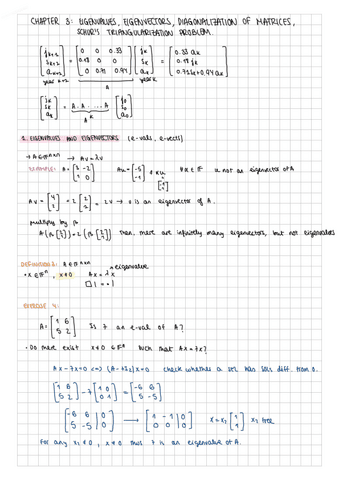 CHAPTER 3: EIGENVALUES, EIGENVECTORS, DIAGONALIZATION OF MATRICES,
SCHUR'S TRIANGULARIZATION PROBLEM.
[j_{k+1} s_{k+1} a_{k+1}] = [0 0 0.33; 0.18 0 0; 0 0.71 0.94] [j_k s_k a_k] = [0.33 a_k; 0.18 j_k; 0.71 s_k + 0.94 a_k]
year k+1 A year k
[j_k s_k a_k] = A · A · ... A [j_0 s_0 a_0]
A^k
1. EIGENVALUES AND EIGENVECTORS (e-vals, e-vects)
→ A ∈ F^{n×n} → Av = λv
EXAMPLE: A = [3 -2; 1 0] Au = [-5; -1] ≠ αu ∀α ∈ F u not an eigenvector of A
[-1; 1]
Av = [4; 2] = 2 [2; 1] = 2v → v is an eigenvector of A.
multiply by β
A(β [2; 1]) = 2 (β [2; 1]) Then, there are infinitely many eigenvectors, but not eigenvalues
DEFINITION 2: A ∈ F^{n×n}
• x ∈ F^n, x ≠ 0 Ax = λx eigenvalue
□ | = • |
EXERCISE 4:
A = [1 6; 5 2] Is 7 an e-val of A?
• Do there exist x ≠ 0 ∈ F^2 such that Ax = 7x?
Ax - 7x = 0 <=> (A - 7I_2)x = 0 check whether a sol has sols diff. from 0.
[1 6; 5 2] - 7 [1 0; 0 1] = [-6 6; 5 -5]
[-6 6 | 0; 5 -5 | 0] → [1 -1 | 0; 0 0 | 0] x = x_2 [1; 1] x_2 free
For any x_2 ≠ 0, x ≠ 0 thus 7 is an eigenvalue of A.